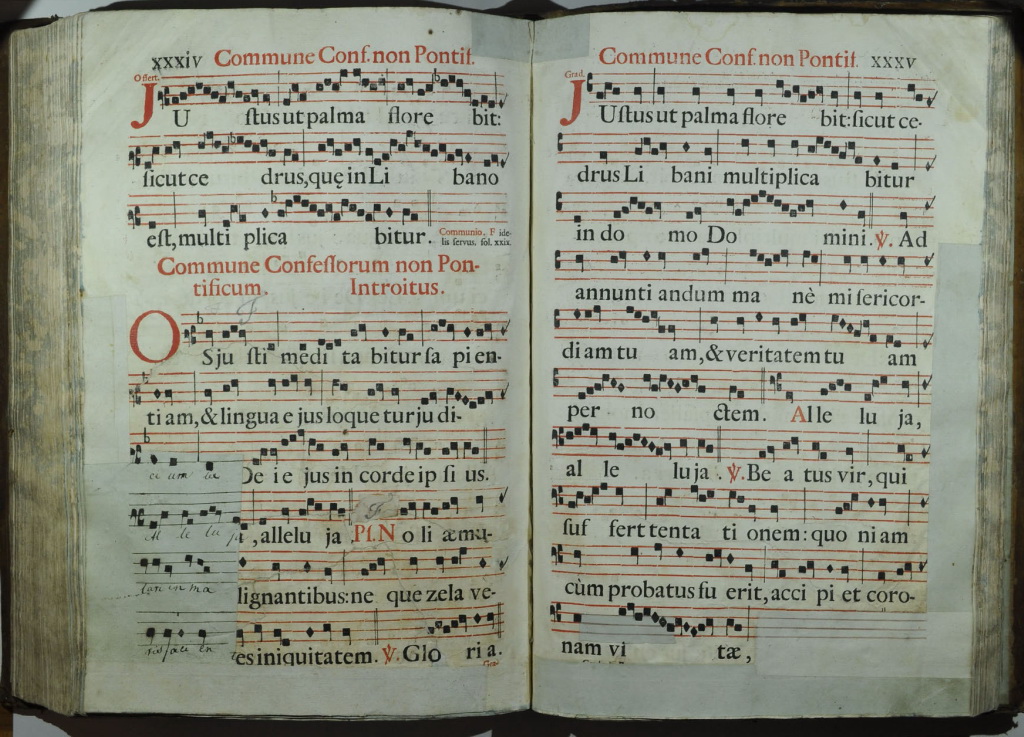 xxxiv Commune Conf. non Pontif.
Offert.
JUſtus ut palma flore bit:
ſicut ce drus, quę in Li bano
eſt, multi plica bitur. Communio. Fide-
lis ſervus. fol. xxix.
Commune Confeſſorum non Pon-
tificum. Introitus.
OSju ſti medi ta bitur ſa pi en-
ti am, & lingua e jus loque tur ju di-
ci um la De i e jus in corde ip ſi us.
Al le lu ja, allelu ja. Pſ. No li æmu-
lari in ma lignantibus: ne que zela ve-
ris faci en tes iniquitatem. ℣. Glo ri a.
Commune Conf. non Pontif. xxxv
Grad.
JUſtus ut palma flore bit: ſicut ce-
drus Li bani multiplica bitur
in do mo Do mini. ℣. Ad
annunti andum ma nè mi ſericor-
di am tu am, & veritatem tu am
per no ctem. Alle lu ja,
al le lu ja. ℣. Be a tus vir, qui
ſuf fert tenta ti onem: quo ni am
cùm probatus fu erit, acci pi et coro-
nam vi tæ,